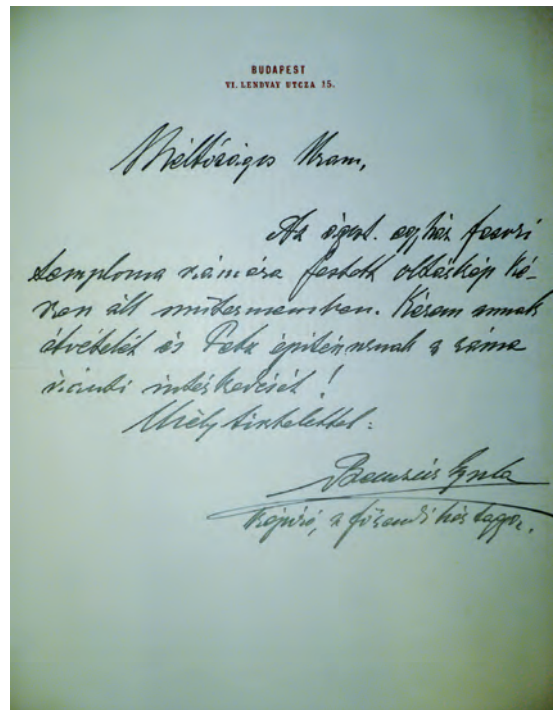 BUDAPEST
VI. LENDVAY UTCZA 15.
Méltóságos Uram,
Az ágost. egyház fasori
temploma számára festett oltárkép ké-
szen áll műtermemben. Kérem annak
átvételét és Petz építész urnak a száma
iránti intézkedését!
Mély tisztelettel:
Benczúr Gyula
képíró, a főrendiház tagja.